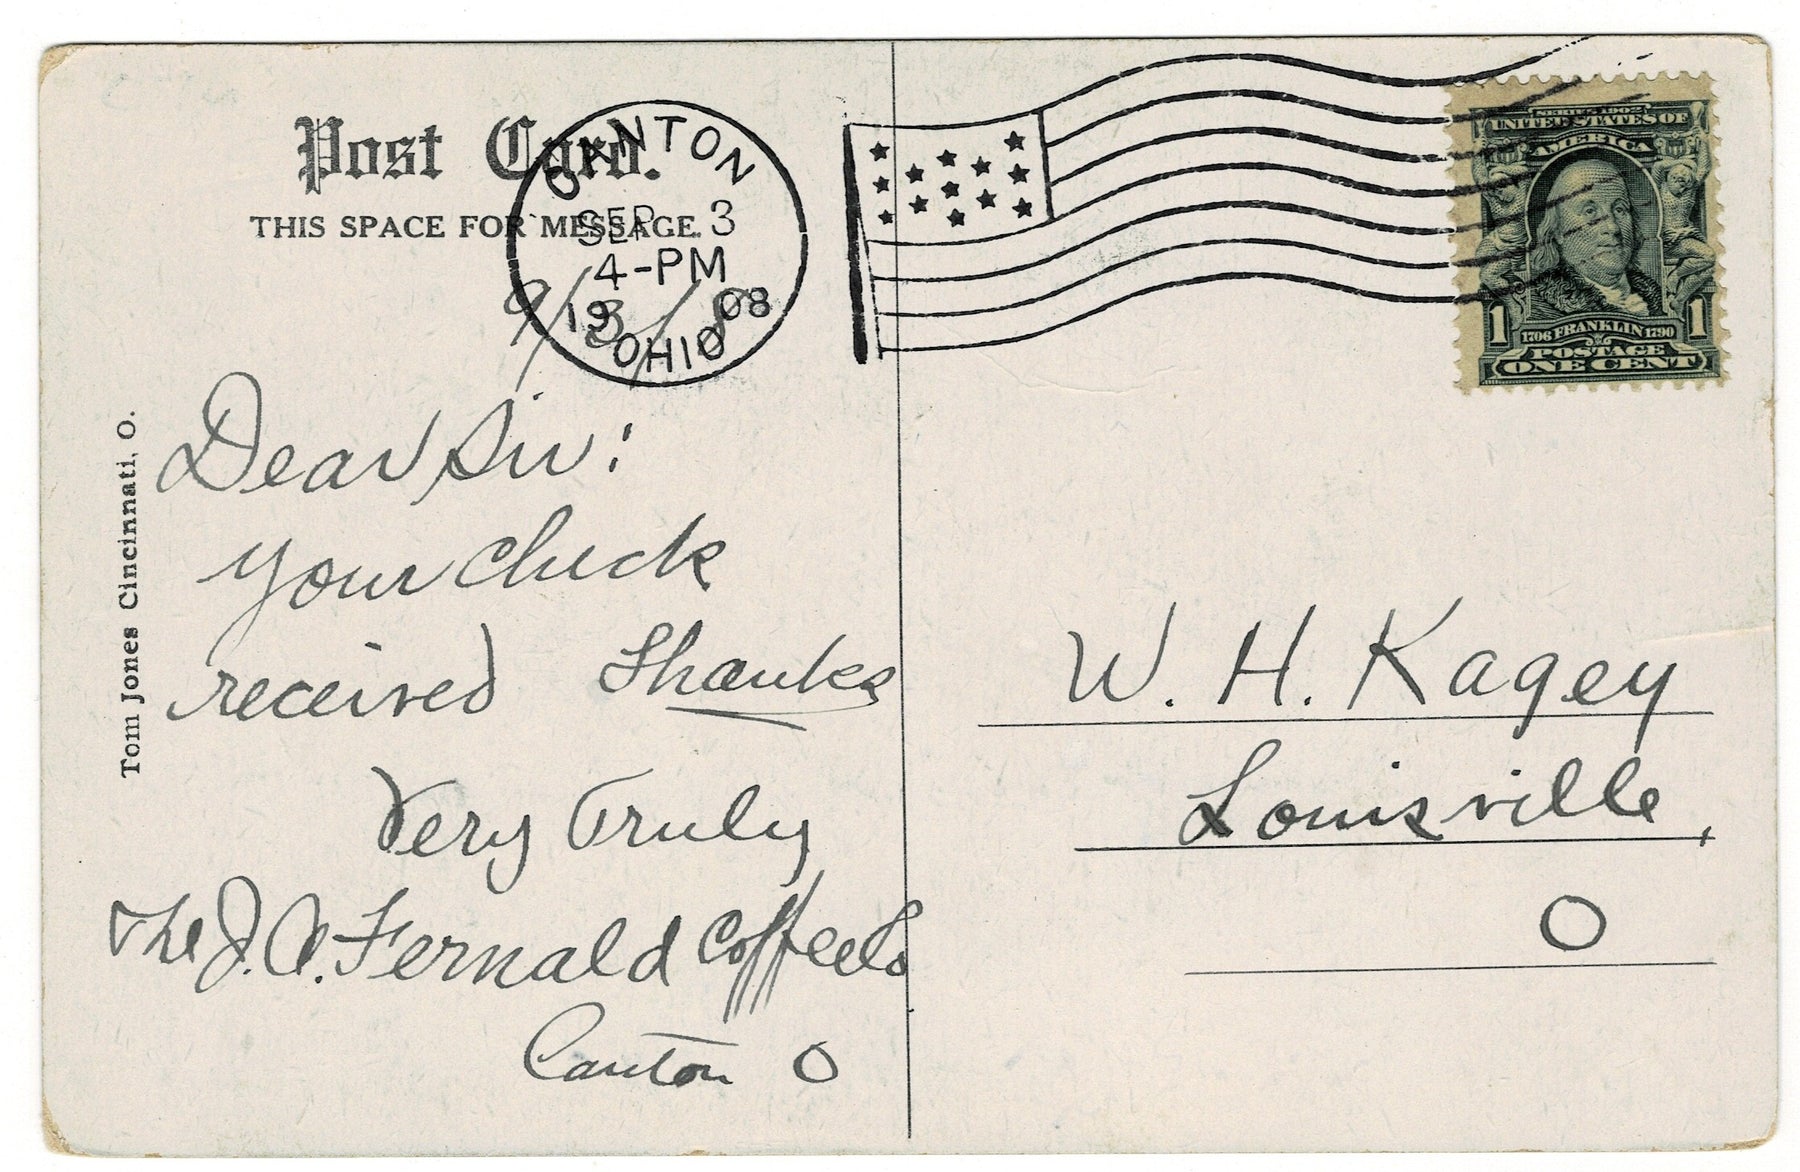 Post Card.
THIS SPACE FOR MESSAGE.
CANTON
SEP 3
4-PM
1908
OHIO
9/3/8
SERIES 1902
UNITED STATES OF
AMERICA
1 1706 FRANKLIN 1790 1
POSTAGE
ONE CENT
Tom Jones Cincinnati, O.
Dear Sir:
Your check
received Thanks
Very Truly
The J. A. Fernald Coffee Co
Canton O
W. H. Kagey
Louisville,
O